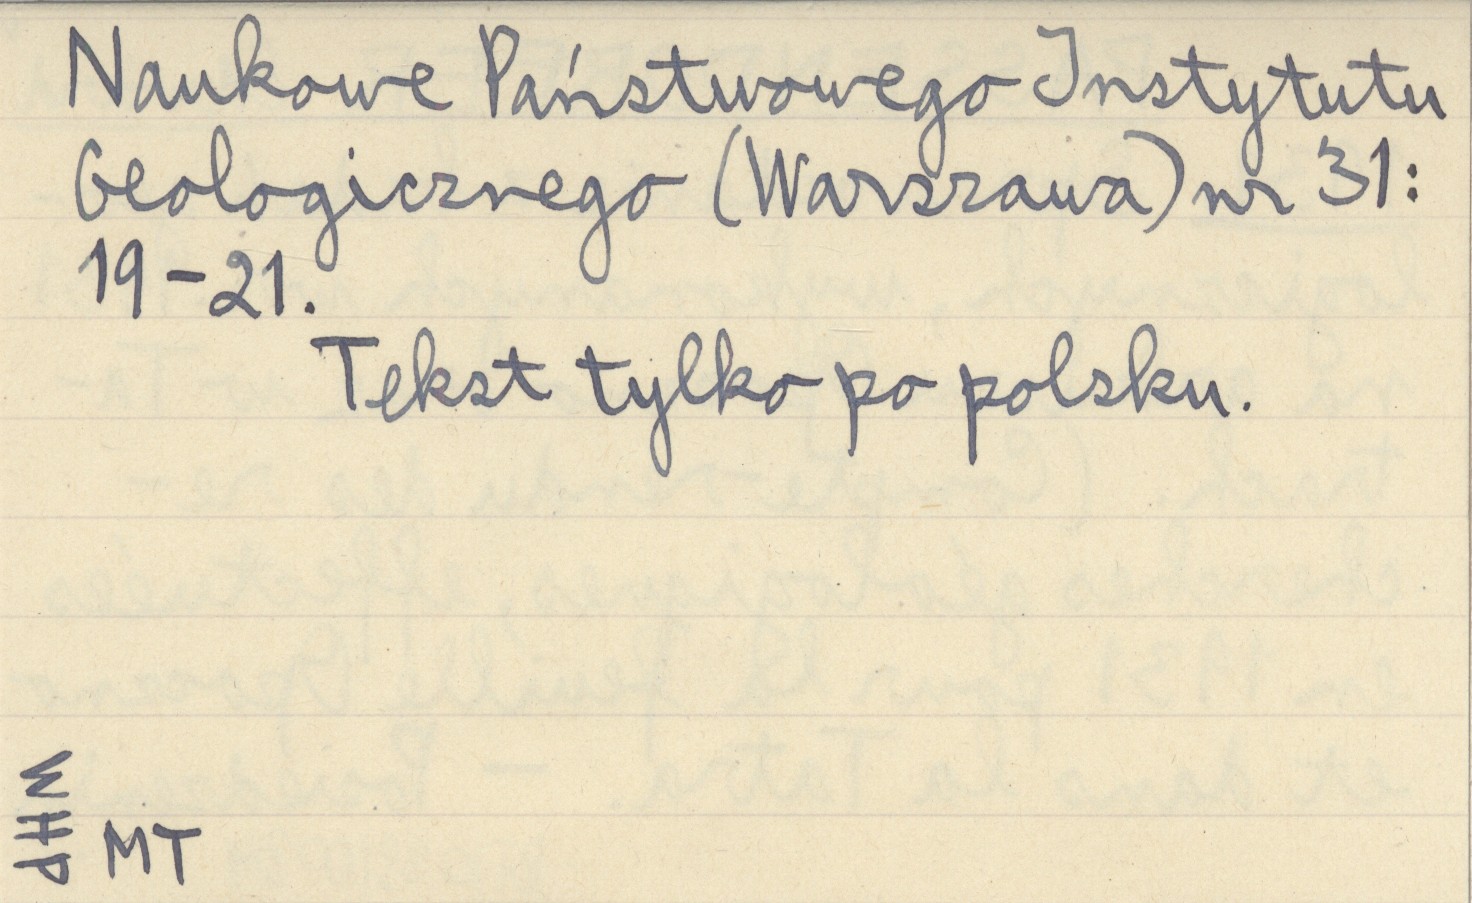 Naukowe Państwowego Instytutu
Geologicznego (Warszawa) nr 31:
19-21.
Tekst tylko po polsku.
WHP
MT